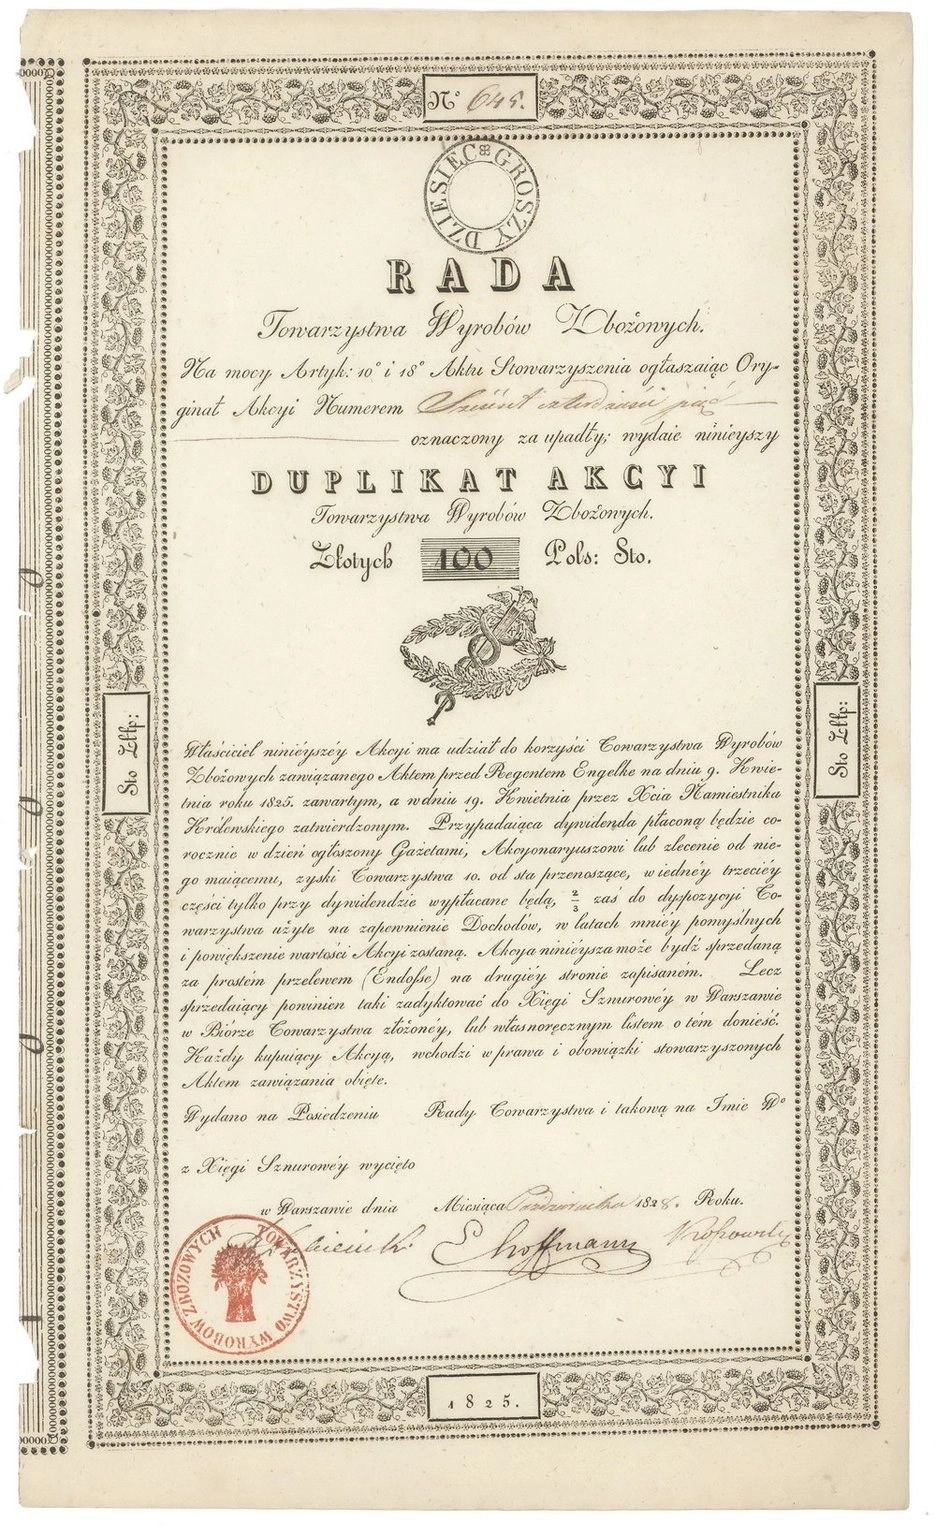 N° 645.
DZIESIEC GROSZY
RADA
Towarzystwa Wyrobów Zbożowych.
Na mocy Artyk: 10° i 18° Aktu Stowarzyszenia ogłaszaiąc Ory-
ginał Akcyi Numerem Sześćset czterdzieści pięć
oznaczony za upadły; wydaie ninieyszy
DUPLIKAT AKCYI
Towarzystwa Wyrobów Zbożowych.
Złotych 100 Pols: Sto.
Sto Złp:
Sto Złp:
Właściciel ninieyszéy Akcyi ma udział do korzyści Towarzystwa Wyrobów
Zbożowych zawiązanego Aktem przed Regentem Engelke na dniu 9. Kwie-
tnia roku 1825. zawartym, a w dniu 19. Kwietnia przez Xcia Namiestnika
Królewskiego zatwierdzonym. Przypadaiąca dywidenda płaconą będzie co-
rocznie w dzień ogłoszony Gazetami, Akcyonaryuszowi lub zlecenie od nie-
go maiącemu, zyski Towarzystwa 10. od sta przenoszące, w iednéy trzeciéy
części tylko przy dywidendzie wypłacane będą, 2/3 zaś do dyspozycyi To-
warzystwa użyte na zapewnienie Dochodów, w latach mniéy pomyślnych
i powiększenie wartości Akcyi zostaną. Akcya ninieysza może bydź sprzedaną
za prostém przelewem (Endosse) na drugiéy stronie zapisaném. Lecz
sprzedaiący powinien taki zadyktować do Xięgi Sznurowéy w Warszawie
w Biórze Towarzystwa złożonéy, lub własnoręcznym listem o tém donieść.
Każdy kupuiący Akcyą, wchodzi w prawa i obowiązki stowarzyszonych
Aktem zawiązania obięte.
Wydano na Posiedzeniu Rady Towarzystwa i takową na Imie W°
z Xięgi Sznurowéy wycięto
w Warszawie dnia Miesiąca Października 1828. Roku.
Hoffmann
TOWARZYSTWO WYROBÓW ZBOZOWYCH
1825.